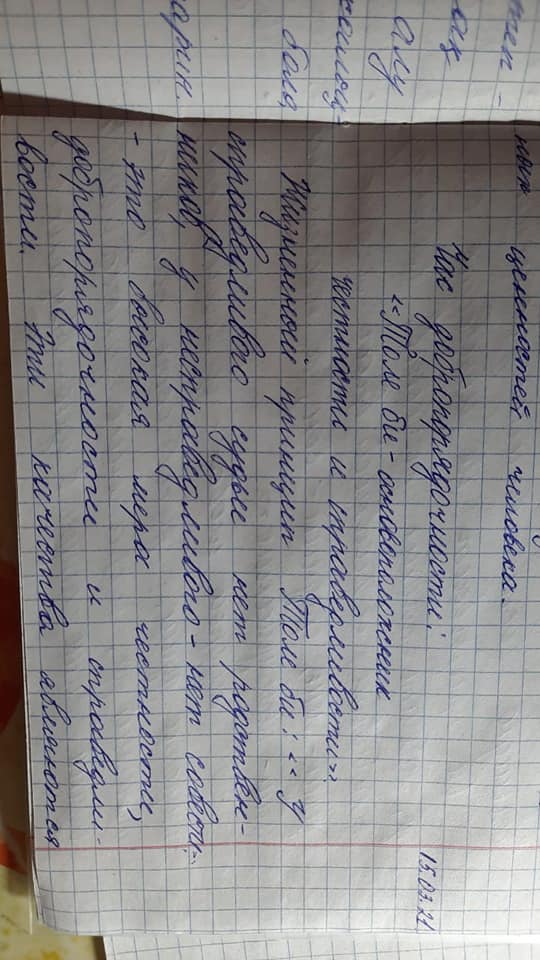 ных ценностей человека.
15.03.21
Час добропорядочности:
«Толе би - основоположник
честности и справедливости»
Жизненный принцип Толе би: «У
справедливого судьи нет родствен-
ников, у несправедливого - нет совести»
- это высокая мера честности,
добропорядочности и справедли-
вости. Эти качества являются